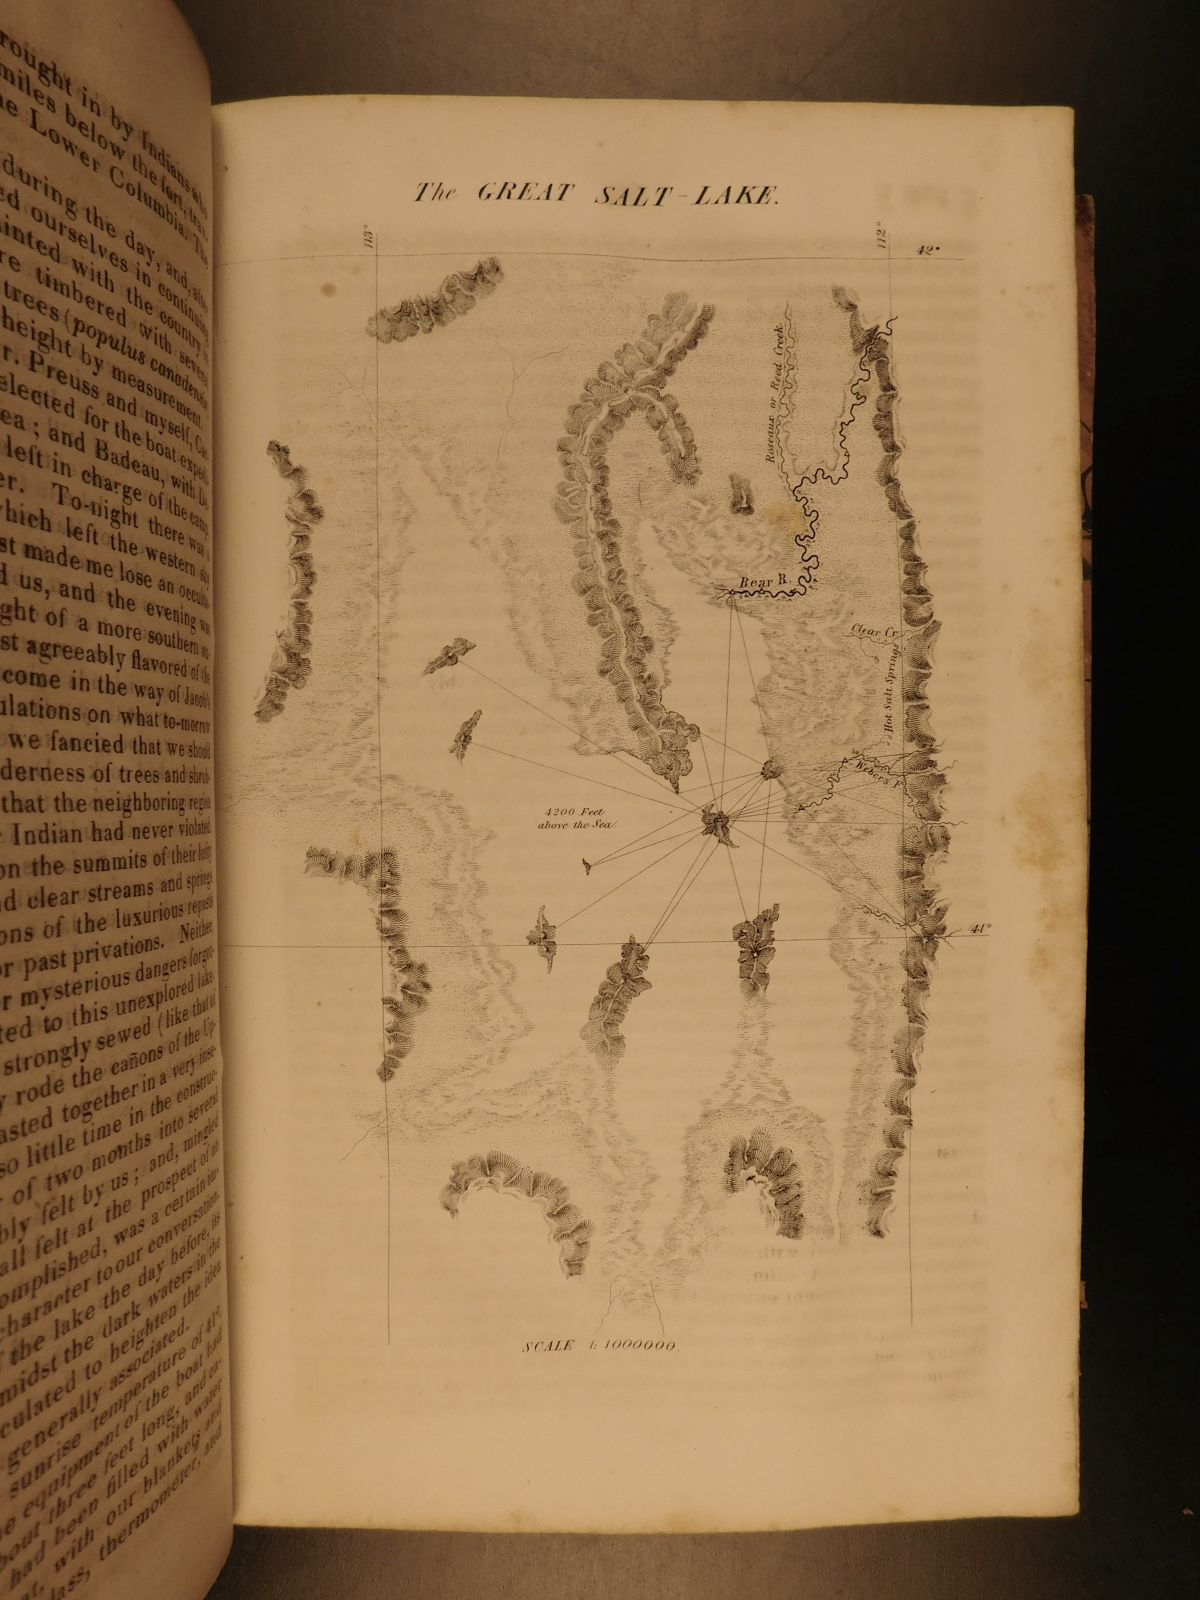 rought in by Indians who
miles below the fort, trav-
he Lower Columbia. The
during the day, and, after
ed ourselves in continuing
ainted with the country in
re timbered with several
trees (populus canadensis
height by measurement.
r. Preuss and myself, Car-
elected for the boat exped-
ea; and Badeau, with De-
left in charge of the camp
er. To-night there was a
which left the western sky
st made me lose an occulta-
d us, and the evening was
ght of a more southern au-
st agreeably flavored of the
come in the way of Jacob's
ulations on what to-morrow
we fancied that we should
derness of trees and shrub-
that the neighboring region
r Indian had never violated
on the summits of their lofty
nd clear streams and springs
ons of the luxurious repasts
or past privations. Neither,
r mysterious dangers forgot-
ted to this unexplored lake.
strongly sewed (like that of
y rode the cañons of the Up-
asted together in a very inse-
so little time in the construc-
r of two months into several
bly felt by us; and, mingled
all felt at the prospect of un
omplished, was a certain im-
character to our conversation.
f the lake the day before, its
midst the dark waters in the
culated to heighten the idea
generally associated.
sunrise temperature of 41°.
e equipment of the boat had
bout three feet long, and ca-
had been filled with water
at, with our blankets and
lass, thermometer, and
The GREAT SALT-LAKE.
113°
112°
42°
Roseaux or Reed Creek
Bear R.
Clear Cr.
Hot Salt Springs
Weber's F.
4200 Feet
above the Sea.
41°
SCALE 1:1000000.